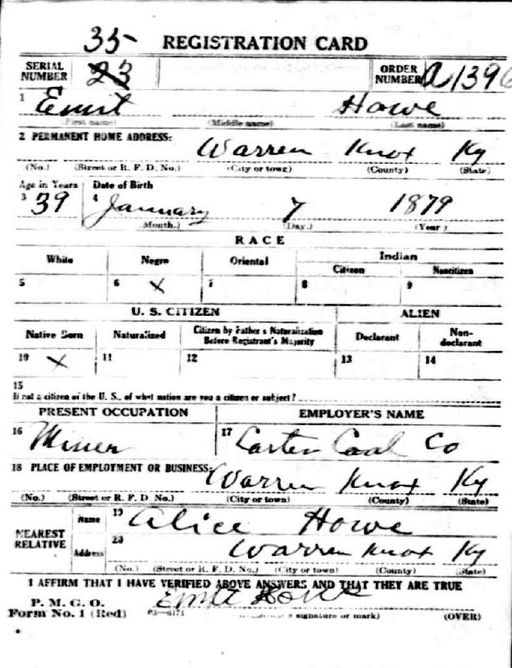 35- REGISTRATION CARD
SERIAL NUMBER 23 ORDER NUMBER A1396
1 Howe
(First name) (Middle name) (Last name)
2 PERMANENT HOME ADDRESS: Warren Knox Ky
(No.) (Street or R. F. D. No.) (City or town) (County) (State)
Age in Years Date of Birth
3 39 4 January 7 1879
(Month.) (Day.) (Year)
RACE
White Negro Oriental Indian
Citizen Noncitizen
5 6 X 7 8 9
U. S. CITIZEN ALIEN
Native Born Naturalized Citizen by Father's Naturalization Before Registrant's Majority Declarant Non-declarant
10 X 11 12 13 14
15
If not a citizen of the U. S., of what nation are you a citizen or subject?
PRESENT OCCUPATION EMPLOYER'S NAME
16 Miner 17 Carter Coal Co
18 PLACE OF EMPLOYMENT OR BUSINESS: Warren Knox Ky
(No.) (Street or R. F. D. No.) (City or town) (County) (State)
NEAREST RELATIVE Name 19 Alice Howe
Address 20 Warren Knox Ky
(No.) (Street or R. F. D. No.) (City or town) (County) (State)
I AFFIRM THAT I HAVE VERIFIED ABOVE ANSWERS AND THAT THEY ARE TRUE
P. M. G. O.
Form No. 1 (Red) 03—6171 signature or mark) (OVER)